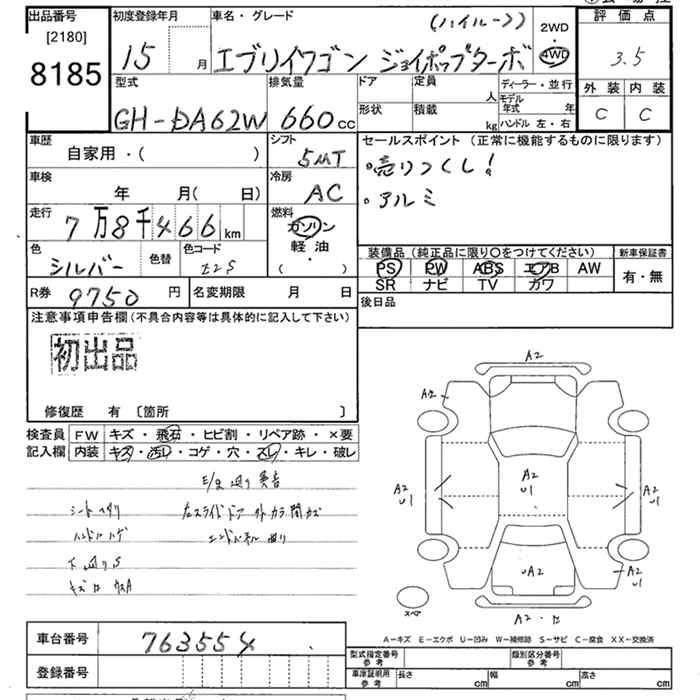 出品番号 初度登録年月 車名・グレード (ハイルーフ) 2WD 評価点
[2180]
8185 15 月 エブリイワゴン ジョイポップターボ 4WD 3.5
型式 排気量 ドア 定員 人 ディーラー・並行 外装 内装
GH-DA62W 660cc 形状 積載 kg モデル年式 年 C C
ハンドル 左・右
車歴 シフト セールスポイント(正常に機能するものに限ります)
自家用・( ) 5MT ・売りつくし!
車検 冷房 ・アルミ
年 月( 日) AC
走行 燃料
7万8千466km ガソリン
軽油
( )
色 色替 色コード 装備品(純正品に限り○をつけてください) 新車保証書
シルバー Z2S PS PW ABS エアB AW 有・無
SR ナビ TV カワ
R券 9750円 名変期限 月 日 後日品
注意事項申告欄(不具合内容等は具体的に記入して下さい)
初出品
修復歴 有 〔箇所 〕
検査員 FW キズ・飛石・ヒビ割・リペア跡・×要
記入欄 内装 キズ・汚レ・コゲ・穴・スレ・キレ・破レ
E/g 辺り 異音
シート ヘタリ 左スライドドア
ハンドル ハゲ エンドパネル 曲り
下廻りS
A2
A2
A2
U1
A2
U1
A2
U1
UA2
A2
U1
スペア
A2
A−キズ E−エクボ U−凹み W−補修跡 S−サビ C−腐食 XX−交換済
車台番号 763554
登録番号
型式指定番号 参考 類別区分番号 参考
車庫証明用 参考 長さ cm 幅 cm 高さ cm